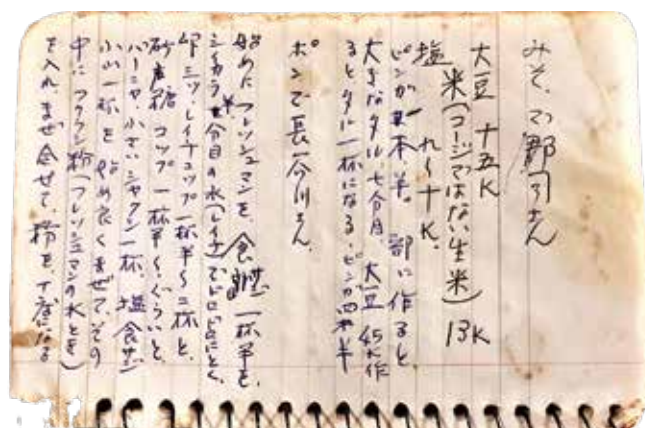 みそ、
大豆 十五K
米(コージではない生米) 13K
塩 九〜十K.
ビンが 本、半。一部に作ると
大きなタル、七分目、大豆45K作
るとタル一杯になる、ビンが四本半
ポンで長谷川さん、
始めにフレッシュマンを、食サジ一杯半を、
半分目の水(レイチ)でドロドロにとく、
卵三ツ、レイチコップ一杯半〜二杯と、
砂糖コップ一杯半〜ぐらいと、
バーニヤ、小さいシャクシ一杯、塩食サジ
小小一杯を始め良くまぜて、その
中にフクラシ粉(フレッシュマンの水とき)
を入れ、まぜ合せて、粉を丁度になる